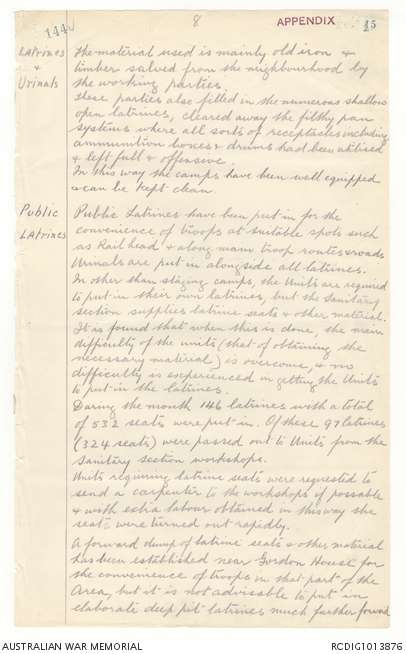 144
8
APPENDIX
15
Latrines The material used is mainly old iron &
& timber salved from the neighbourhood by
Urinals the working parties.
These parties also filled in the numerous shallow
open latrines, cleared away the filthy pan
systems where all sorts of receptacles including
ammunition boxes & drums had been utilised
& left full & offensive.
In this way the camps have been well equipped
& can be kept clean.
Public Public Latrines have been put in for the
Latrines convenience of troops at suitable spots such
as Railhead & along main troop routes & roads
Urinals are put in alongside all latrines.
In other than staging camps, the Units are required
to put in their own latrines, but the Sanitary
section supplies latrine seats & other material.
It is found that when this is done, the main
difficulty of the units (that of obtaining the
necessary material) is overcome, & no
difficulty is experienced in getting the Units
to put in the latrines.
During the month 146 latrines with a total
of 532 seats were put in. Of these 97 latrines
(324 seats) were passed out to Units from the
Sanitary section workshops.
Units requiring latrine seats were requested to
send a carpenter to the workshops if possable
& with extra labour obtained in this way the
seats were turned out rapidly.
A forward dump of latrine seats & other material
has been established near Gordon House for
the convenience of troops in that part of the
Area, but it is not advisable to put in
elaborate deep pit latrines much further forward
AUSTRALIAN WAR MEMORIAL
RCDIG1013876